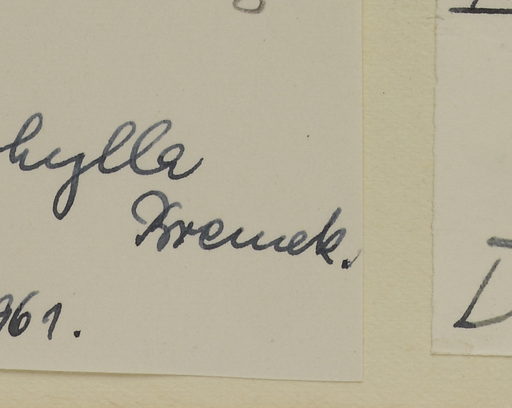 hylla
Kremek.
961.